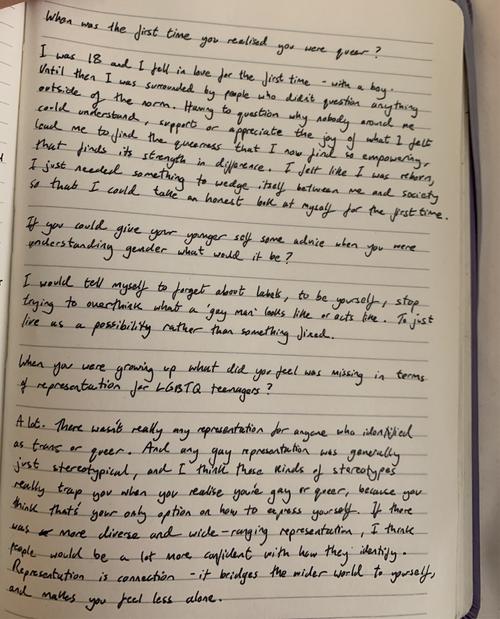 When was the first time you realised you were queer?
I was 18 and I fell in love for the first time - with a boy.
Until then I was surrounded by people who didn't question anything
outside of the norm. Having to question why nobody around me
could understand, support or appreciate the joy of what I felt
lead me to find the queerness that I now find so empowering,
that finds its strength in difference. I felt like I was reborn,
I just needed something to wedge itself between me and society
so that I could take an honest look at myself for the first time.
If you could give your younger self some advice when you were
understanding gender what would it be?
I would tell myself to forget about labels, to be yourself, stop
trying to overthink what a 'gay man' looks like or acts like. To just
live as a possibility rather than something fixed.
When you were growing up what did you feel was missing in terms
of representation for LGBTQ teenagers?
A lot. There wasn't really any representation for anyone who identified
as trans or queer. And any gay representation was generally
just stereotypical, and I think these kinds of stereotypes
really trap you when you realise you're gay or queer, because you
think that's your only option on how to express yourself. If there
was more diverse and wide-ranging representation, I think
people would be a lot more confident with how they identify.
Representation is connection - it bridges the wider world to yourself,
and makes you feel less alone.